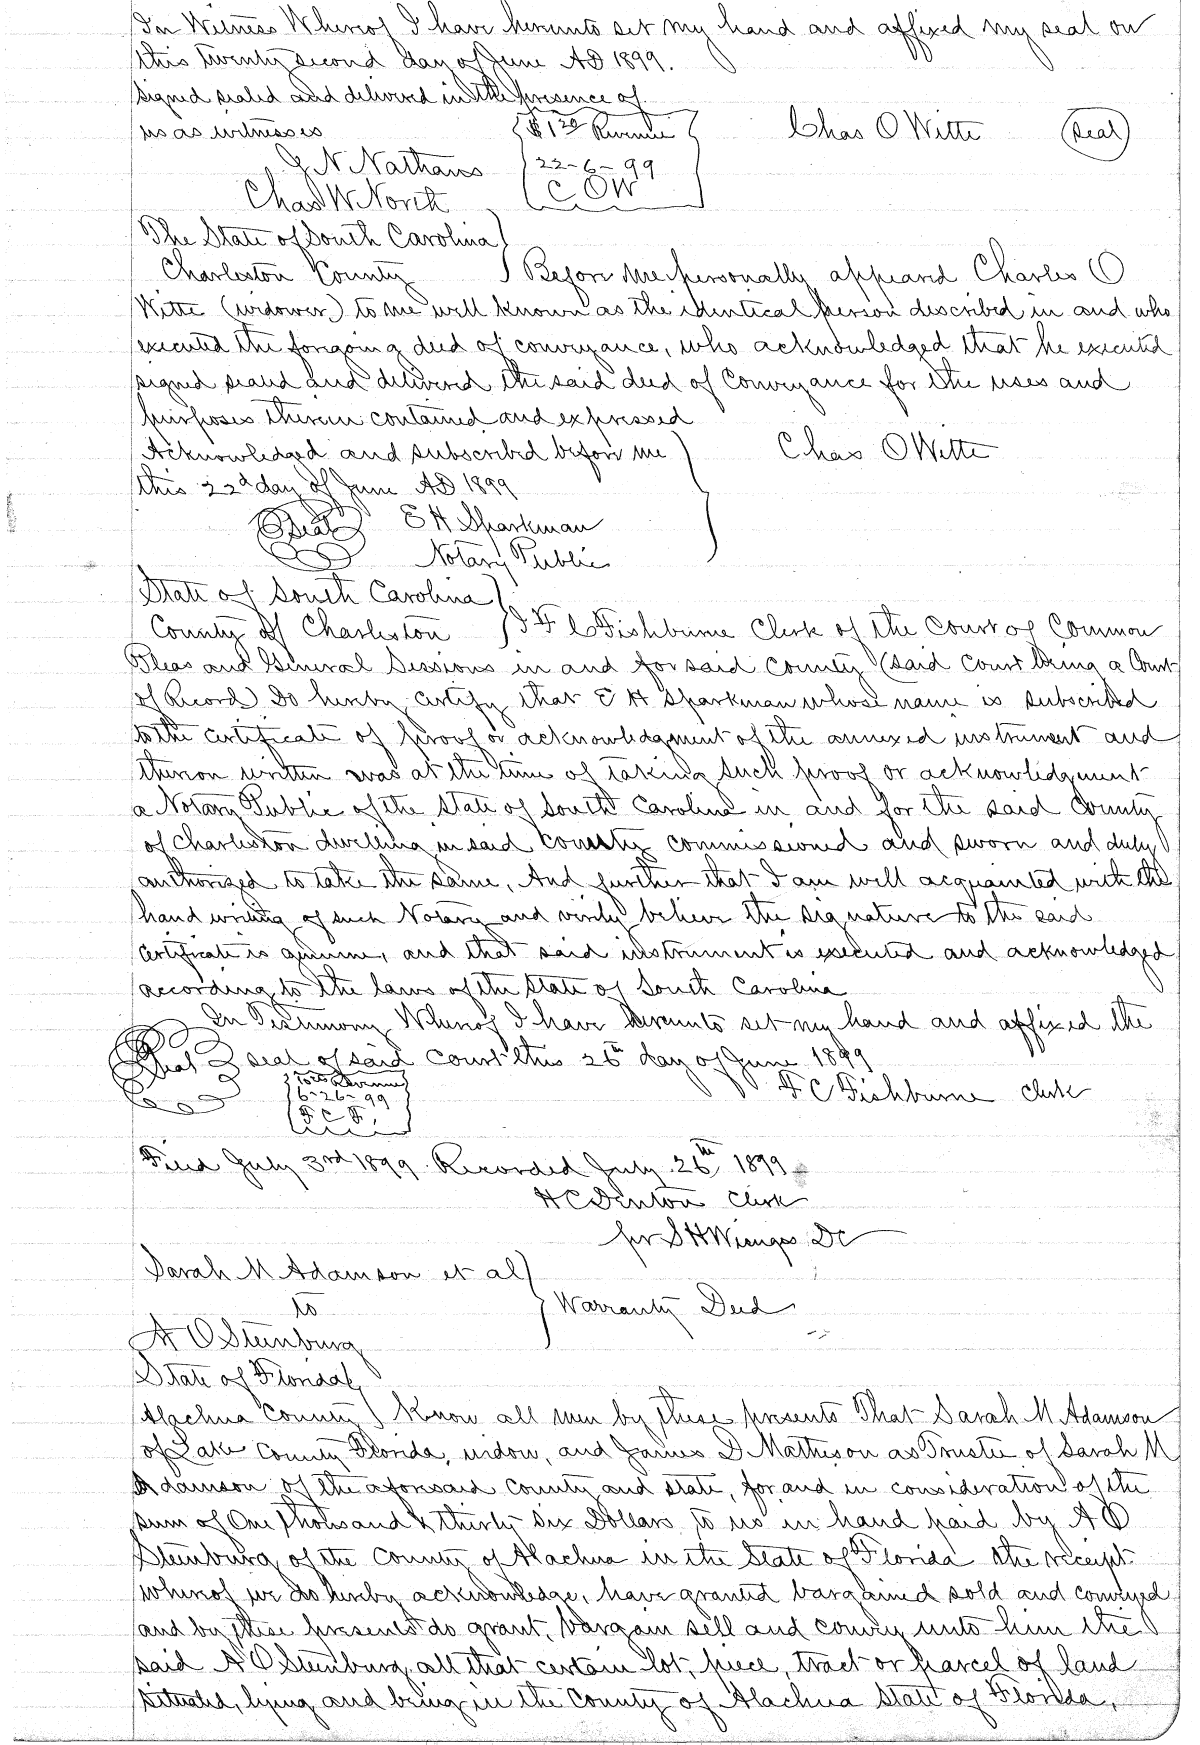 In Witness Whereof I have hereunto set my hand and affixed my seal on
this twenty second day of June AD 1899.
Signed sealed and delivered in the presence of
us as witnesses
G N Nathans
Chas W North
$1 Revenue
22-6-99
C O W
Chas O Witte (Seal)
The State of South Carolina
Charleston County } Before me personally appeared Charles O
Witte (widower) to me well known as the identical person described in and who
executed the foregoing deed of conveyance, who acknowledged that he executed
signed sealed and delivered the said deed of Conveyance for the uses and
purposes therein contained and expressed
Acknowledged and subscribed before me } Chas O Witte
this 22d day of June AD 1899
Seal E H Sparkman
Notary Public
State of South Carolina
County of Charleston } I F C Fishburne Clerk of the Court of Common
Pleas and General Sessions in and for said County (said Court being a Court
of Record) Do hereby certify that E H Sparkman whose name is subscribed
to the certificate of proof or acknowledgment of the annexed instrument and
thereon written was at the time of taking such proof or acknowledgment
a Notary Public of the State of South Carolina in and for the said County
of Charleston dwelling in said County commissioned and sworn and duly
authorized to take the same, And further that I am well acquainted with the
hand writing of such Notary and verily believe the signature to the said
certificate is genuine, and that said instrument is executed and acknowledged
according to the laws of the State of South Carolina
In Testimony Whereof I have hereunto set my hand and affixed the
Seal seal of said Court this 26th day of June 1899
10cts Revenue
6-26-99
F C F.
F C Fishburne Clerk
Filed July 3rd 1899 Recorded July 26th 1899
H C Denton Clerk
per S H Wienges DC
Sarah M Adamson et al
to } Warranty Deed
A O Steenburg
State of Florida
Alachua County } Know all men by these presents That Sarah M Adamson
of Lake County Florida, widow, and James D Matheson as Trustee of Sarah M
Adamson of the aforesaid County and state, for and in consideration of the
sum of One Thousand & thirty six Dollars to us in hand paid by A O
Steenburg of the County of Alachua in the State of Florida the receipt
whereof we do hereby acknowledge, have granted bargained sold and conveyed
and by these presents do grant, bargain sell and convey unto him the
said A O Steenburg all that certain lot, piece, tract or parcel of land
situated, lying and being in the County of Alachua State of Florida,